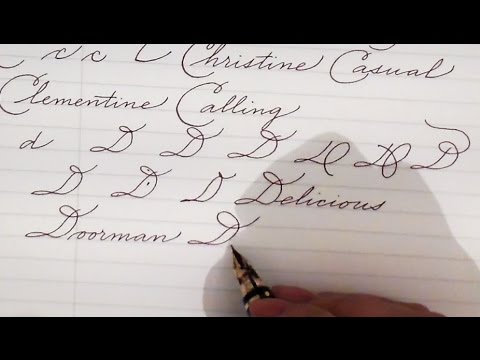 c c C Christine Casual
Clementine Calling
d D D D D D D
D D D Delicious
Doorman D